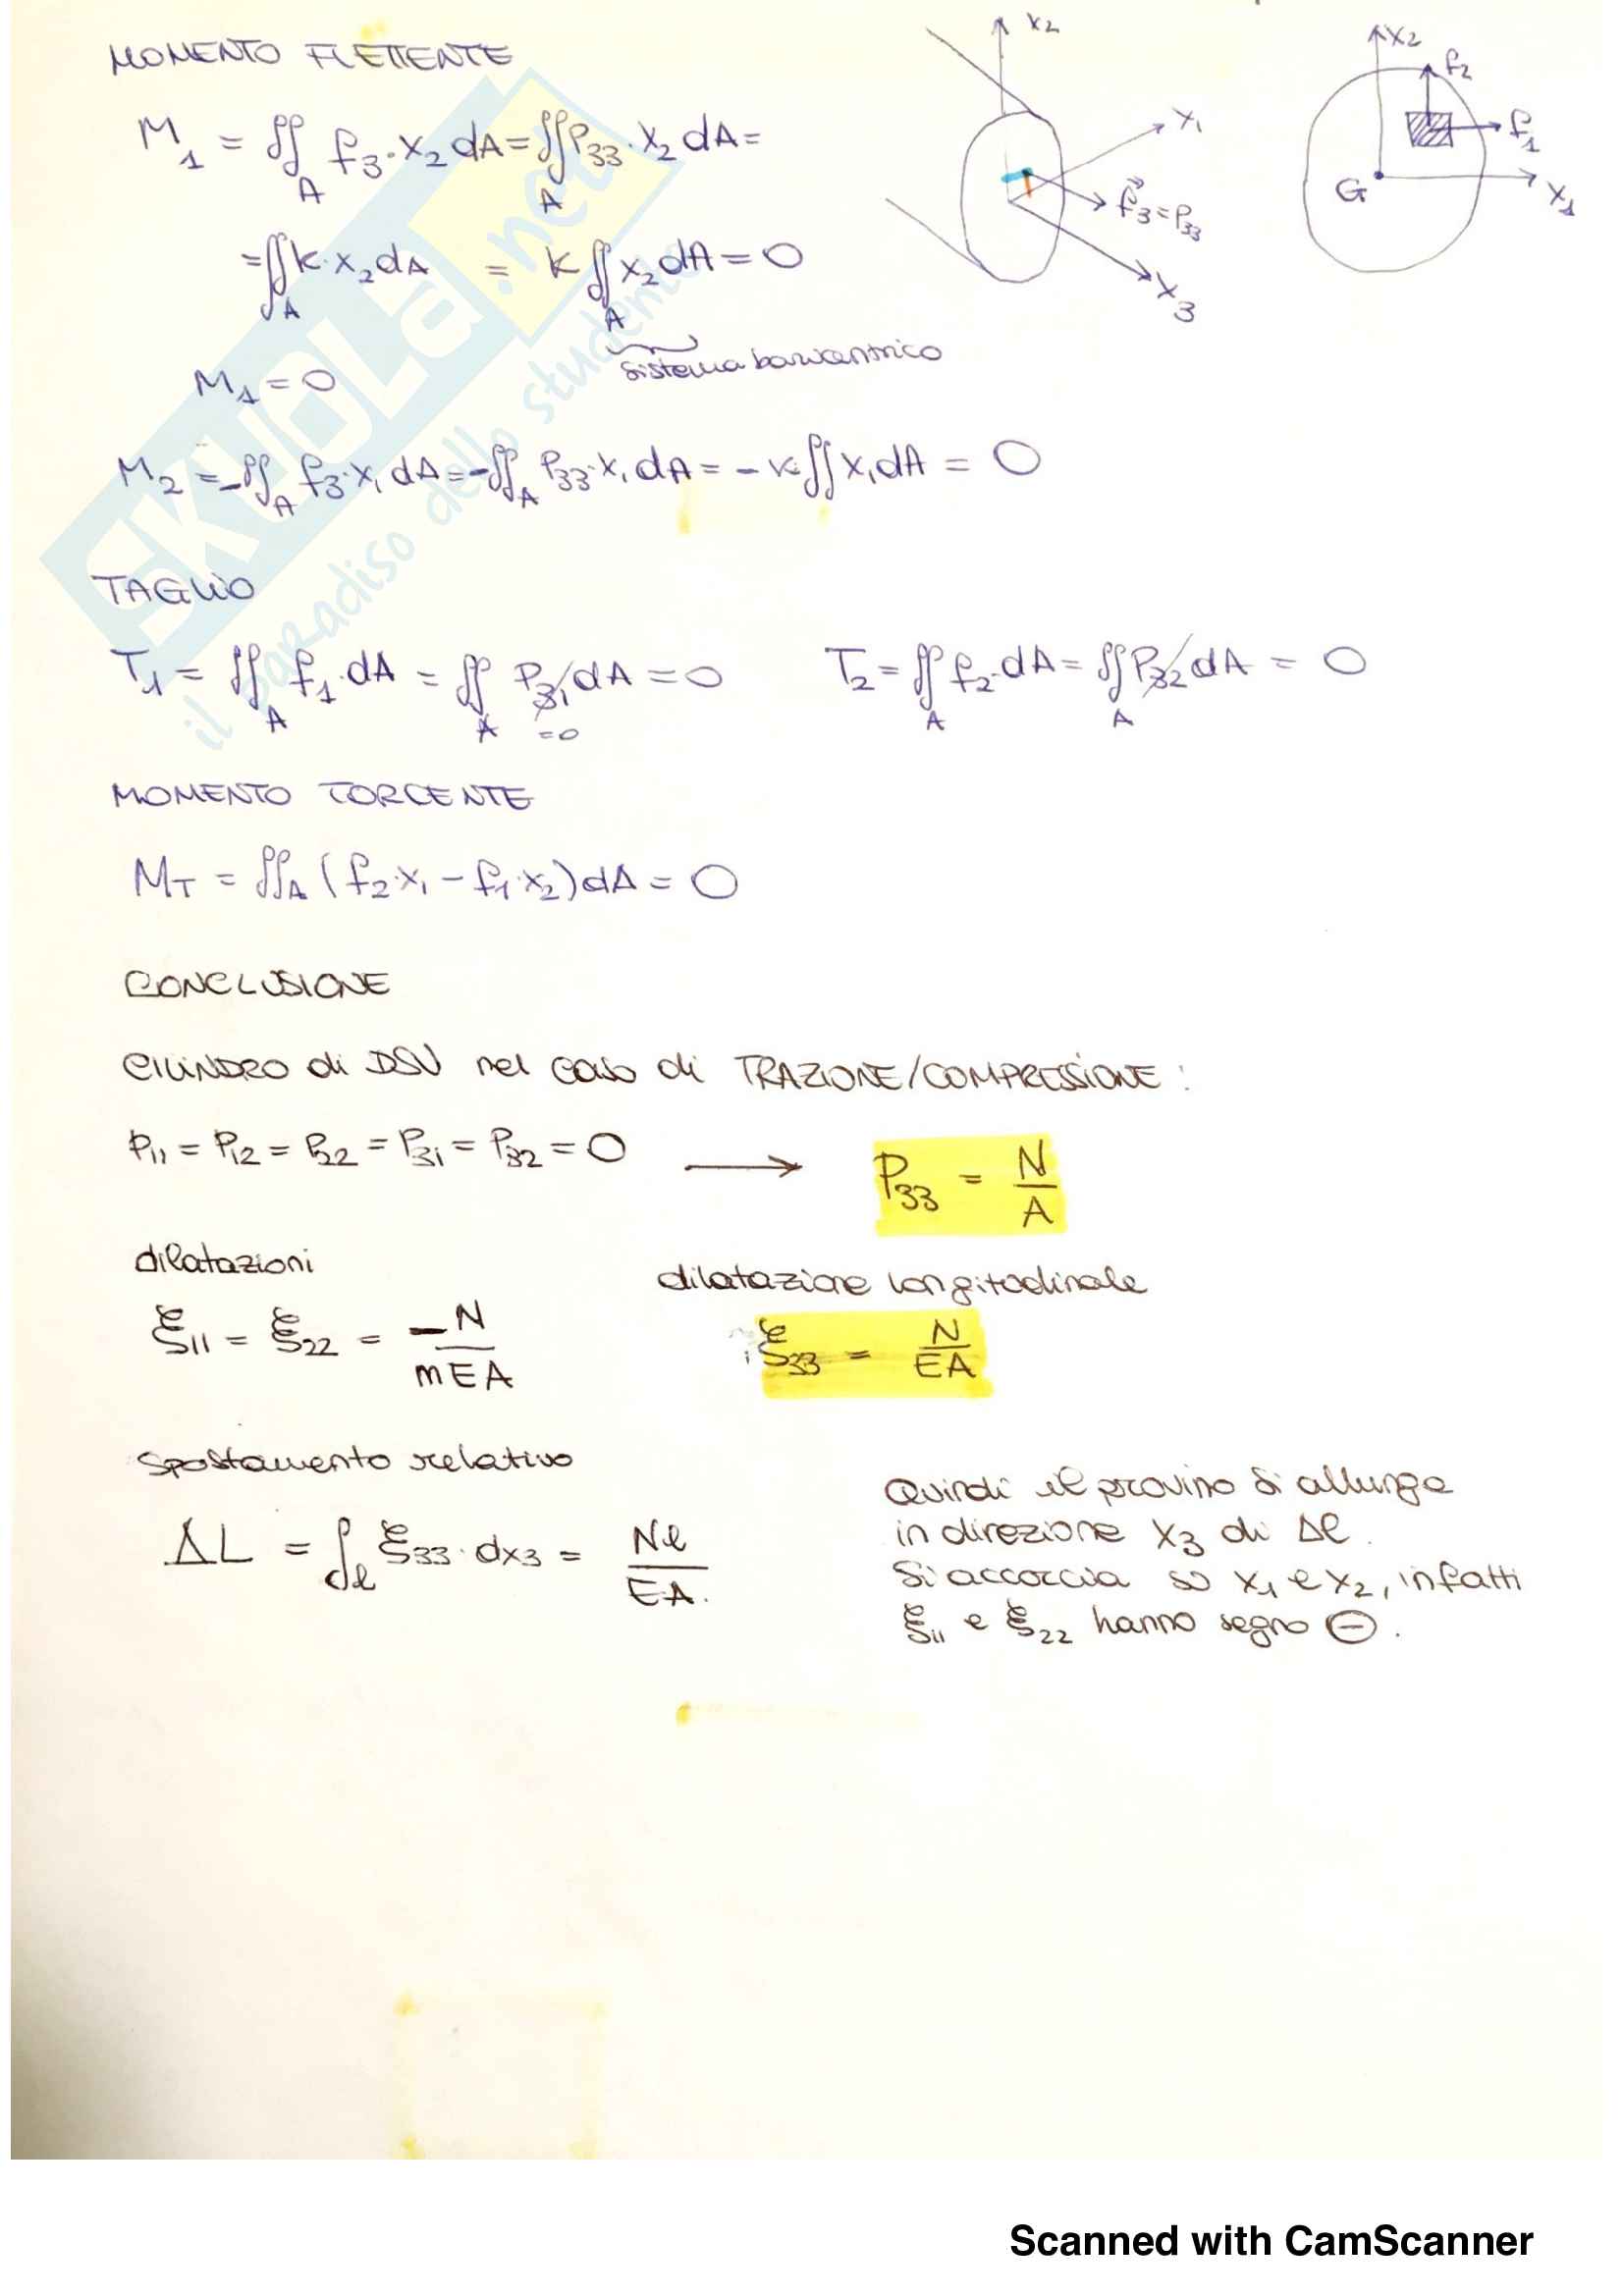 MOMENTO FLETTENTE
M₁ = ∬_A f₃·x₂ dA = ∬_A P₃₃·x₂ dA =
= ∬_A k·x₂ dA = K ∬_A x₂ dA = 0
sistema baricentrico
M₁ = 0
M₂ = -∬_A f₃·x₁ dA = -∬_A P₃₃·x₁ dA = -k ∬ x₁ dA = 0
x₂
x₁
f⃗₃ = P₃₃
x₃
x₂
f₂
f₁
G
x₁
TAGLIO
T₁ = ∬_A f₁·dA = ∬_A P₃₁ dA = 0
=0
T₂ = ∬_A f₂·dA = ∬_A P₃₂ dA = 0
MOMENTO TORCENTE
M_T = ∬_A (f₂·x₁ - f₁·x₂) dA = 0
CONCLUSIONE
CILINDRO di DSV nel caso di TRAZIONE/COMPRESSIONE :
P₁₁ = P₁₂ = P₂₂ = P₃₁ = P₃₂ = 0 → P₃₃ = N/A
dilatazioni
ξ₁₁ = ξ₂₂ = -N/mEA
dilatazione longitudinale
ξ₃₃ = N/EA
spostamento relativo
ΔL = ∫_l ξ₃₃·dx₃ = Nl/EA.
Quindi il provino si allunga
in direzione x₃ di Δl.
Si accorcia su x₁ e x₂, infatti
ξ₁₁ e ξ₂₂ hanno segno ⊖.
SKUOLA.net
il paradiso dello studente
Scanned with CamScanner